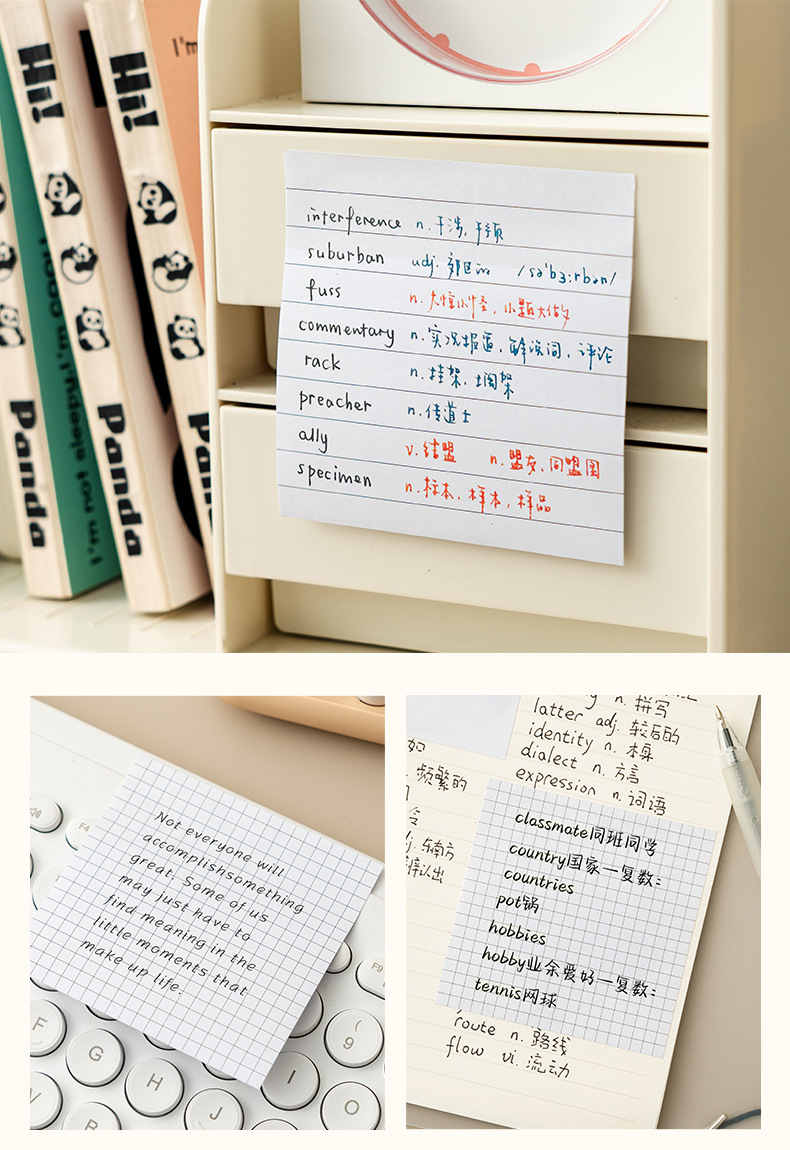 Hi!
Panda
Hi!
Panda
I'm
I'm not sleepy,I'm
interference n.干涉,干预
suburban adj.郊区的 /sə'bɜ:rbən/
fuss n.大惊小怪,小题大做
commentary n.实况报道,解说词,评论
rack n.挂架,搁架
preacher n.传道士
ally v.结盟 n.盟友,同盟国
specimen n.标本,样本,样品
Not everyone will
accomplishsomething
great. Some of us
may just have to
find meaning in the
little moments that
make up life.
F4
F9
F
G
H
J
I
O
(
9
V
B
n.拼写
latter adj.较后的
identity n.本身
dialect n.方言
expression n.词语
如
频繁的
令
东南方
辨认出
classmate同班同学
country国家一复数:
countries
pot锅
hobbies
hobby业余爱好一复数:
tennis网球
route n.路线
flow vi.流动